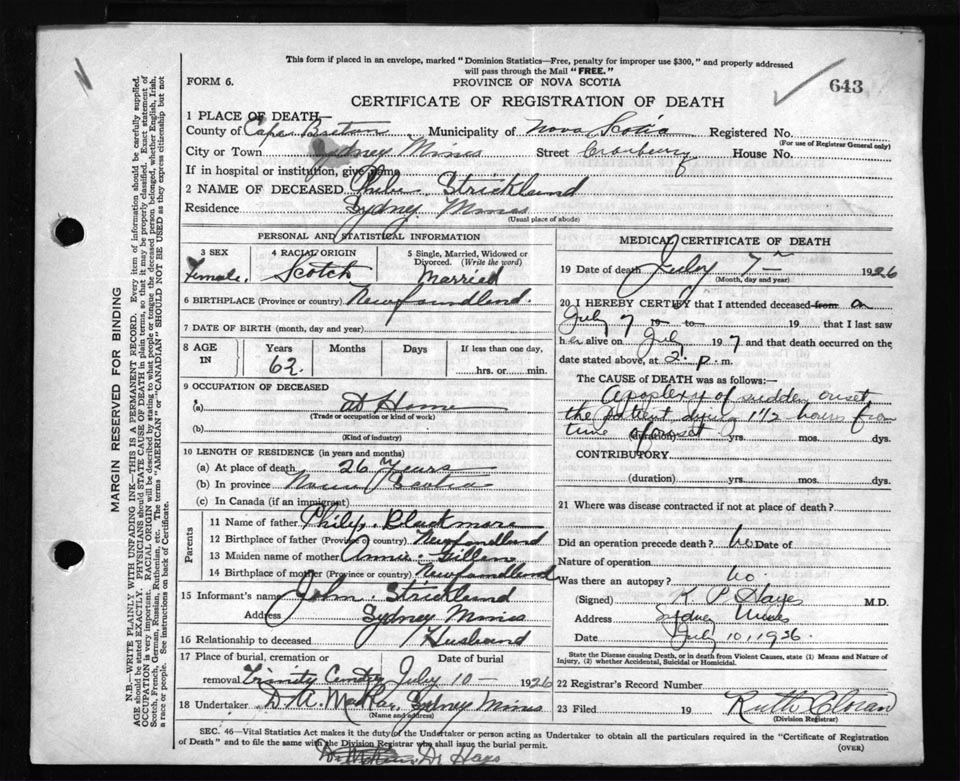 This form if placed in an envelope, marked "Dominion Statistics—Free, penalty for improper use $300," and properly addressed
will pass through the Mail "FREE."
FORM 6.
PROVINCE OF NOVA SCOTIA
643
CERTIFICATE OF REGISTRATION OF DEATH
1 PLACE OF DEATH—
County of Cape Breton Municipality of Nova Scotia Registered No.
(For use of Registrar General only)
City or Town Sydney Mines Street Cranberry House No.
If in hospital or institution, give name
2 NAME OF DECEASED Strickland
Residence Sydney Mines
(Usual place of abode)
PERSONAL AND STATISTICAL INFORMATION
3 SEX
Female
4 RACIAL ORIGIN
Scotch
5 Single, Married, Widowed or
Divorced. (Write the word)
Married
6 BIRTHPLACE (Province or country) Newfoundland.
7 DATE OF BIRTH (month, day and year)
8 AGE
IN
Years
62
Months
Days
If less than one day,
hrs. or min.
9 OCCUPATION OF DECEASED
(a) at Home
(Trade or occupation or kind of work)
(b)
(Kind of industry)
10 LENGTH OF RESIDENCE (in years and months)
(a) At place of death 26 Years
(b) In province Nova Scotia
(c) In Canada (if an immigrant)
Parents
11 Name of father Philip Blackmore
12 Birthplace of father (Province or country) Newfoundland
13 Maiden name of mother Annie
14 Birthplace of mother (Province or country) Newfoundland
15 Informant's name John Strickland
Address Sydney Mines
16 Relationship to deceased Husband
17 Place of burial, cremation or
removal Trinity July 10 — 1926
Date of burial
18 Undertaker D. A. MacRae, Sydney Mines
(Name and address)
MEDICAL CERTIFICATE OF DEATH
19 Date of death July 7 — 1926
(Month, day and year)
20 I HEREBY CERTIFY that I attended deceased from on
July 7 19 to 19 that I last saw
her alive on July 19 7 and that death occurred on the
date stated above, at 2 p. m.
The CAUSE OF DEATH was as follows:—
Apoplexy of sudden onset
the patient dying 1 1/2 hours from
time of onset
(duration) yrs. mos. dys.
CONTRIBUTORY.
(duration) yrs. mos. dys.
21 Where was disease contracted if not at place of death?
Did an operation precede death? No Date of
Nature of operation
Was there an autopsy? No.
(Signed) K P Hayes M.D.
Address Sydney Mines
Date July 10, 1926.
State the Disease causing Death, or in death from Violent Causes, state (1) Means and Nature of
Injury, (2) whether Accidental, Suicidal or Homicidal.
22 Registrar's Record Number
23 Filed 19 Ruth Cloran
(Division Registrar)
SEC. 46—Vital Statistics Act makes it the duty of the Undertaker or person acting as Undertaker to obtain all the particulars required in the "Certificate of Registration
of Death" and to file the same with the Division Registrar who shall issue the burial permit.
(OVER)
Dr Hays
MARGIN RESERVED FOR BINDING
N.B.—WRITE PLAINLY WITH UNFADING INK—THIS IS A PERMANENT RECORD. Every item of information should be carefully supplied.
AGE should be stated EXACTLY. PHYSICIANS should STATE CAUSE OF DEATH in plain terms, so that it may be properly classified. Exact statement of
OCCUPATION is very important. RACIAL ORIGIN will be described by stating to what people or tongue the deceased person belonged, whether English, Irish,
Scotch, French, German, Russian, Ruthenian, etc. The terms "AMERICAN" or "CANADIAN" SHOULD NOT BE USED as they express citizenship but not
a race or people. See instructions on back of Certificate.